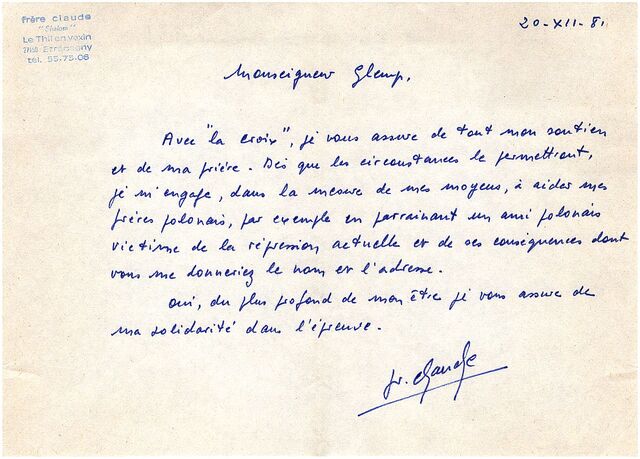 frère claude
"Shalom"
Le Thil en vexin
27150 Etrépagny
tel. 55.73.06
20-XII-81
Monseigneur Glemp,
Avec "la croix", je vous assure de tout mon soutien
et de ma prière. Dès que les circonstances le permettront,
je m'engage, dans la mesure de mes moyens, à aider mes
frères polonais, par exemple en parrainant un ami polonais
victime de la répression actuelle et de ses conséquences dont
vous me donneriez le nom et l'adresse.
Oui, du plus profond de mon être je vous assure de
ma solidarité dans l'épreuve.
fr. Claude